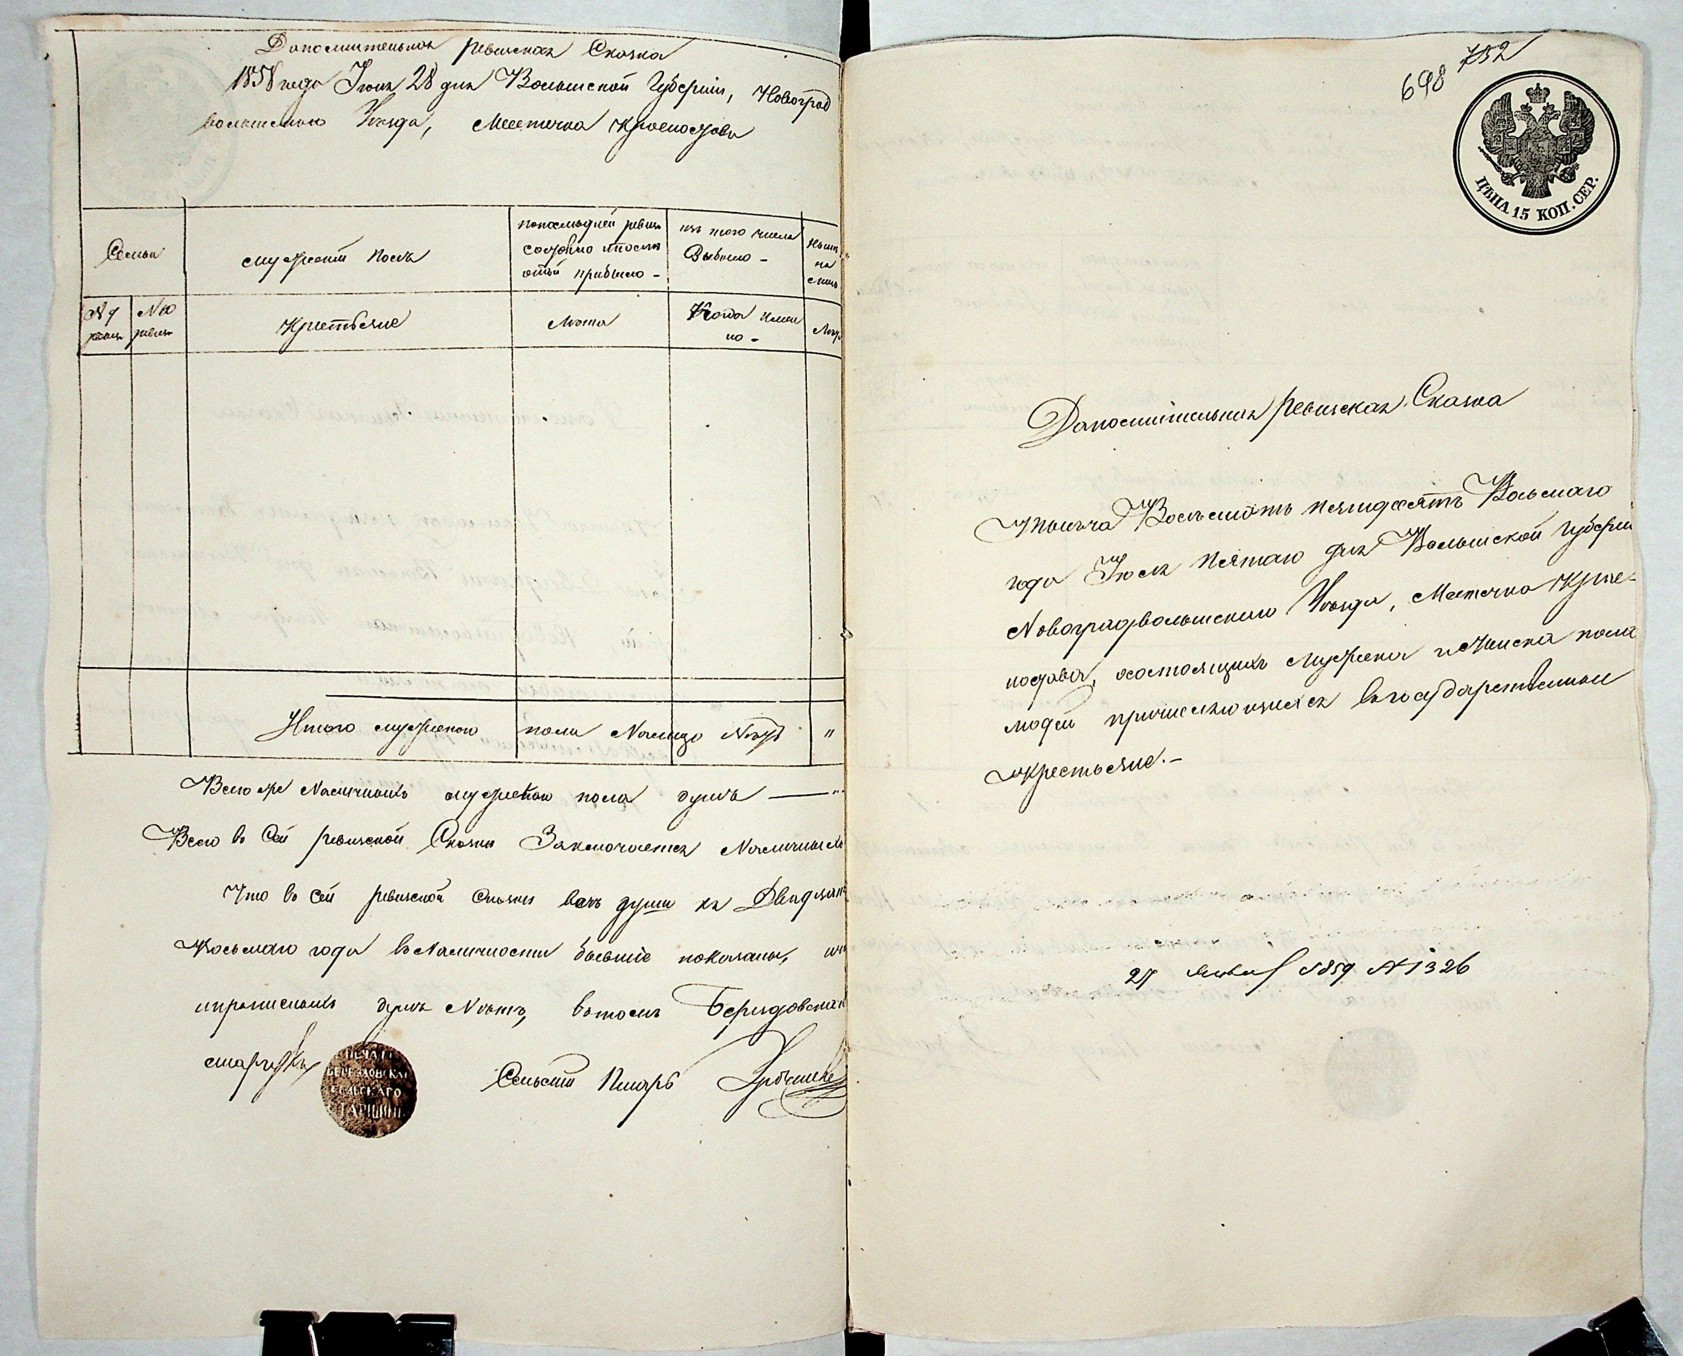 Дополнительная ревизская Сказка
1858 года Июня 28 дня Волынской Губернии, Новоград
волынского Уезда, Местечка Красностава
Семьи
мужеский полъ
по последней ревизии
состояло и после
оной прибыло -
изъ того числа
Выбыло -
№ 9 ревиз
№ 10 ревиз
Крестьяне
Лета
Когда имен
но -
Лет
Итого мужеского пола налицо Нетъ "
Всего же наличныхъ мужеского пола душъ — "
Всего въ сей ревизской Сказке Заключается наличныхъ
Что въ сей ревизской сказке все души къ Двадцать
Восьмаго года въ наличности бывшие показаны, и не
прописныхъ душъ нетъ, въ томъ Березовский
ПЕЧАТЬ
БЕРЕЗДОВСКАГО
СЕЛЬСКАГО
СТАРШИНЫ
Сельский Писарь
698 732
ЦѢНА 15 КОП. СЕР.
Дополнительная ревизская Сказка
Тысяча Восемьсотъ пятидесятъ Восьмаго
года Июля пятаго дня Волынской Губернии
Новоградволынского Уезда, Местечка Крас-
ностава, состоящихъ мужеска и женска пола
людей причисляющихся въ государственные
крестьяне. -
27 1859 № 1326